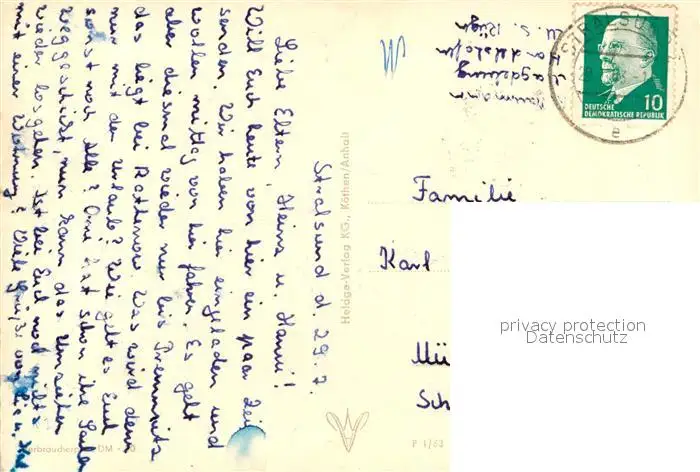 Stralsund d. 29. 7.
Liebe Eltern, Heinz u. Hanni!
Will Euch heute von hier ein paar Zeilen
senden. Wir haben hier eingeladen und
wollen mittag von hier fahren. Es geht
aber diesmal wieder nur bis Premnitz
das liegt bei Rathenow. Was wird denn
nur mit der Urlaub? Wie geht es Euch
sonst noch Alle? Anni hat schon ihre Sachen
weggeschickt, nun kann das Umziehen
wieder losgehen. Ist bei Euch noch nichts
mit einer Wohnung? Viele Grüße von
Magdeburg
W. S. Rügen
STRALSU
DEUTSCHE
DEMOKRATISCHE REPUBLIK
10
Familie
Karl
Mü
Sch
privacy protection
Datenschutz
Heldge-Verlag KG., Köthen/Anhalt
P 1/63